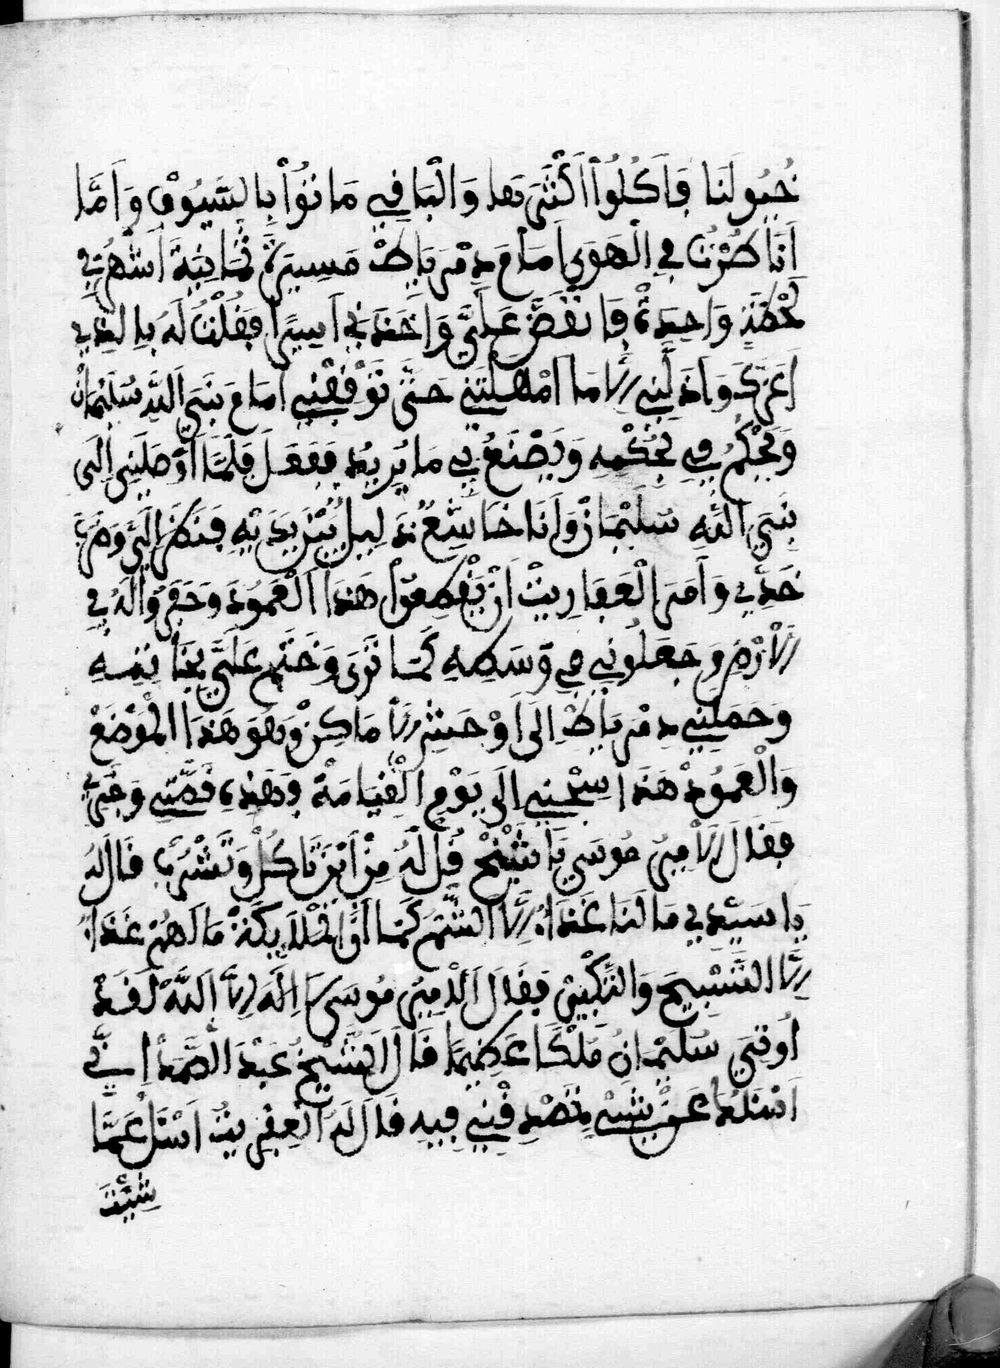 خُيُولَنَا فَاَكُلُواْ اَكْثَرَهَا وَالْبَافِي مَاتُواْ بِالسُّيُوفْ وَاَمَّا
اَنَا طُرْتُ فِي الْهَوَي اَمَامَ دِمْرِيَاطْ مَسِيرَةْ ثَمَانِيَةَ اَشْهُرْ فِي
لَحْظَةٍ وَاحِدَةْ فَانْقَضَّ عَلَيَّ وَاَخَذَنِي اَسِيرًا فَقُلْتُ لَهُ بِالذِي
اَعَزَّكَ وَاذَلَّنِي اِلَّا مَا امْهَلْتَنِي حَتَّى تَوْفِقْنِي اَمَامَ نَبِيَ اللَّهِ سُلَيْمَانْ
وَيَحْكُمُ فِيَّ بِحُكْمِهِ وَيَصْنَعُ بِي مَا يُرِيدُ فَفَعَلَ فَلَمَّا اَوْصَلَنِي اِلَى
نَبِيَ اللَّهِ سُلَيْمَانْ وَاَنَا خَاشِعُ ذَلِيلُ بَيْنَ يَدَيْهِ فَنَظَرَ اِلَيَّ وَمَرَّ
خَدِّي وَاَمَرَ الْعَفَارِيتْ اَنْ يَقْطِعُواْ هَذَا الْعَمُودَ وَحَفِرُواْ لَهُ فِي
الاَرْضِ وَجَعَلُونِي فِي وَسَطِهِ كَمَا تَرَى وَخَتَمَ عَلَيَّ بِخَاتِمِهِ
وَحَمَلَنِي دِمْرِيَاطْ اِلَى اَوْحَشِ الاَمَاكِنْ وَهُوَ هَذَا الْمُوْضَعْ
وَالْعَمُودْ هَذَا سِجْنِي اِلَى يَوْمِ الْقِيَامَةْ وَهَذِهِ قِصَّتِي وَخَبَرِي
فَقَالَ الاَمِيرُ مُوسَى يَا شَيْخْ قُلْ لَهُ مِنْ اَيْنَ تَاكُلْ وَتَشْرَبْ قَالَ لَهُ
يَا سَيِّدِي مَا لَنَا غَذَاءُ اِلَّا الشَّمْ كَمَا اَنَّ الْمَلَايِكَةْ مَا لَهُمْ غَذَاءُ
اِلَّا التَّسْبِيحْ وَالتَّكْبِيرْ فَقَالَ الاَمِيرُ مُوسَى لَا اِلَهَ اِلَّا اللَّهْ لَقَدْ
اُوتِيَ سُلَيْمَانُ مُلْكًا عَظِيمًا قَالَ الشَّيْخْ عَبْدَ الصَّمَدْ اِنِّي
اَسْئَلُكَ عَنْ شَيْءْ تَصْدِقْنِي فِيهِ قَالَ لَهُ الْعِفْرِيتْ اَسْئَلْ عَمَّا
شِيْتَ